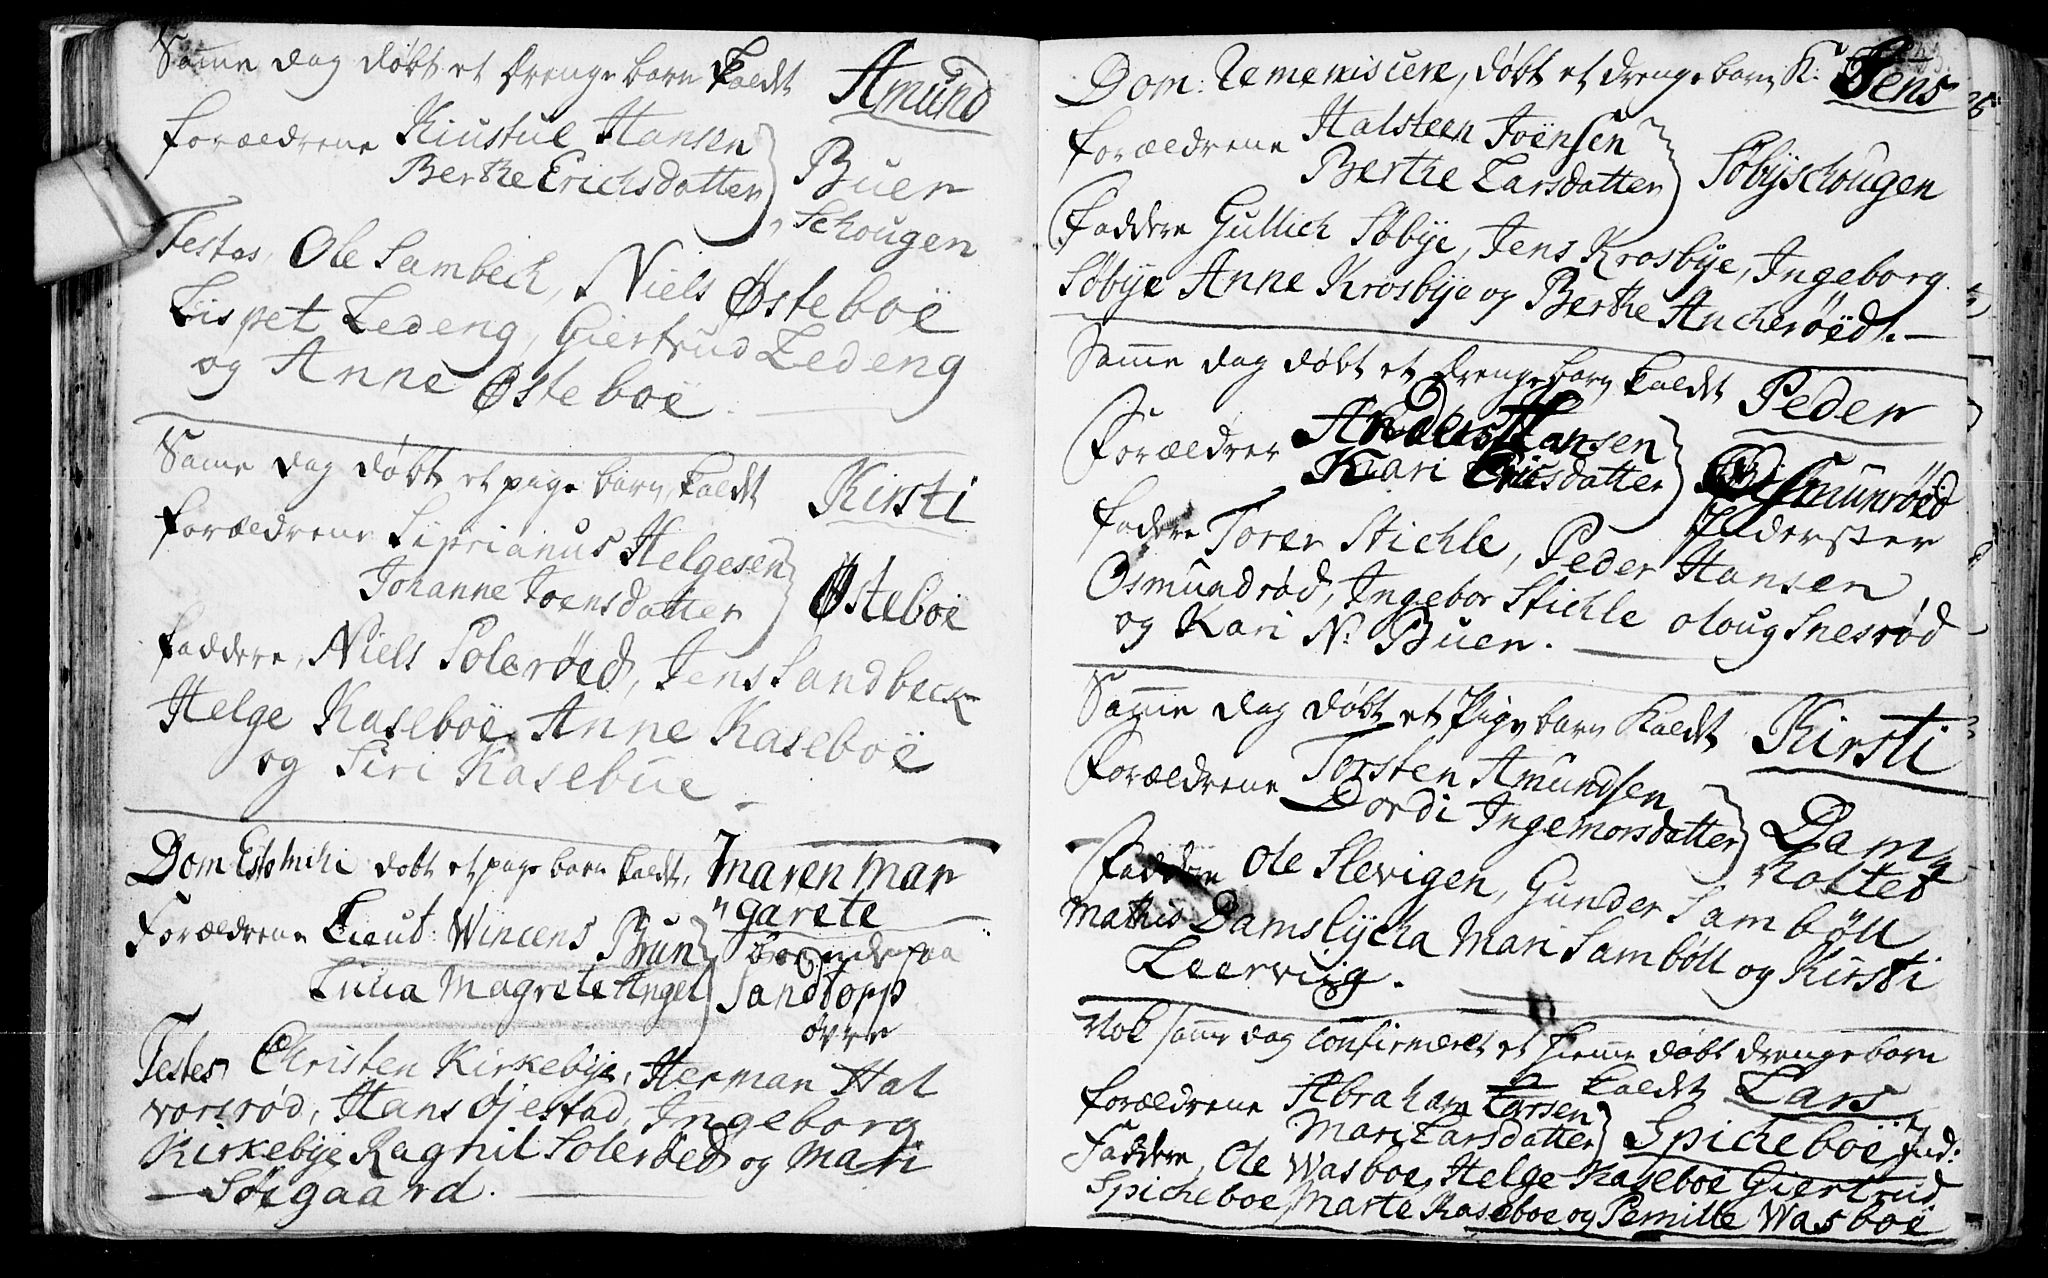 Samme dag døbt et drenge barn kaldt Amund
forældrene Kiustul Hansen
Berthe Erichsdatter Buer
Schougen
Testes, Ole Sambech, Niels Østeboe
Lispet Ledeng, Giertrud Ledeng
og Anne Østeboe.
Samme dag døbt et pige barn, kaldt Kirsti
forældrene Siprianus Helgesen
Johanne Joensdatter Østeboe
faddere, Niels Solerøed, Jens Sandbeck
Helge Kaseboe, Anne Kaseboe
og Siri Kasebue.
Dom Estomihi døbt et pige barn kaldt, Maren Mar
garete
Forældrene Lieut: Wincens Brun boende paa
Lucia Magrete Angel Sandtopp
øvre
Testes, Christen Kirkebye, Herman Hal
vorsrød, Hans Øjestad, Ingeborg
Kirkebye Ragnil Solerøed og Mari
Søegaard.
Dom: Reminiscere, døbt et drenge barn K: Jens
forældrene Halsteen Joensen
Berthe Larsdatter Søbyschougen
Faddere Gullich Søbye, Jens Krosbye, Ingeborg
Søbye Anne Krosbye og Berthe Ancherøed.
Samme dag døbt et drenge barn kaldt Peder
Forældrer Anders Hansen
Kari Ericsdatter Osmunrøed
fadere Torer Stichle, Peder Hansen
Osmundrød, Ingebor Stichle oloug Snesrød
og Kari N: Buer.
Samme dag døbt et Pige barn kaldt Kirsti
Forældrene Torsten Amundsen
Dordi Ingemorsdatter Dam
holtet
Faddere Ole Slevigen, Gunder Sambøll
Mathis Damslycka Mari Sambøll og Kirsti
Leerviig.
Nok samme dag confirmeret et hiemme døbt drengebarn
kaldt Lars
forældrene Abraham Larsen
Mari Larsdatter Spicheboe Ind:
Faddere, Ole Wasboe, Helge Kaseboe Giertrud
Spicheboe, Marte Kaseboe og Pernille Wasboe